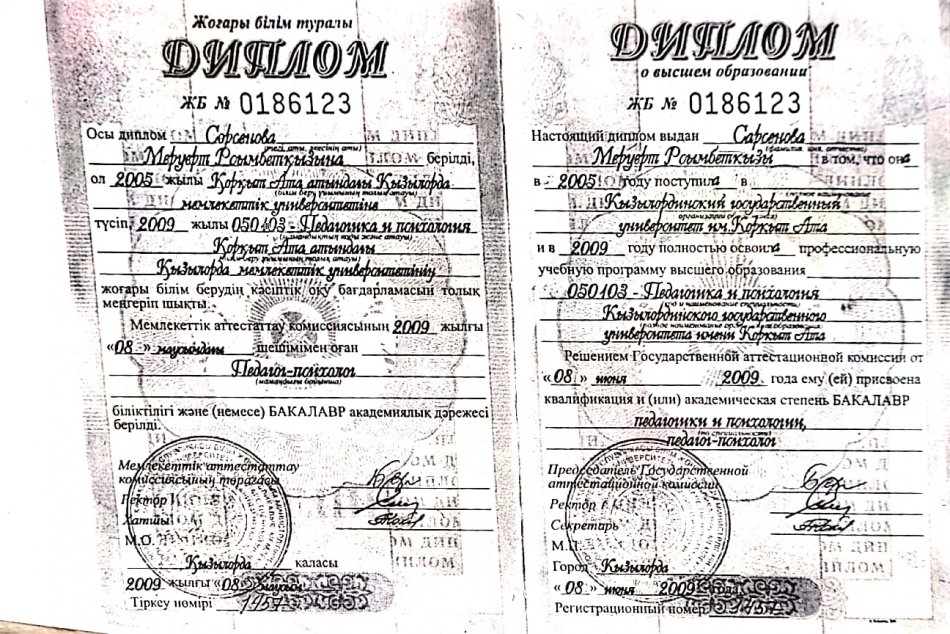 Жоғары білім туралы
ДИПЛОМ
ЖБ № 0186123
Осы диплом Сарсенова
Меруерт Рсымбетқызына берілді,
(тегі, аты, әкесінің аты)
ол 2005 жылы Қорқыт Ата атындағы Қызылорда
мемлекеттік университетіне
түсіп, 2009 жылы 050103 - Педагогика и психология
Қорқыт Ата атындағы
Қызылорда мемлекеттік университетінің
жоғары білім берудің кәсіптік оқу бағдарламасын толық
меңгеріп шықты.
Мемлекеттік аттестаттау комиссиясының 2009 жылғы
«08 » маусымдағы шешімімен оған
Педагог-психолог
(мамандығы бойынша)
біліктілігі және (немесе) БАКАЛАВР академиялық дәрежесі
берілді.
Мемлекеттік аттестаттау
комиссиясының төрағасы
Ректор
Хатшы
М.О.
Қызылорда қаласы
2009 жылғы «08» маусым
Тіркеу нөмірі 1457
ДИПЛОМ
о высшем образовании
ЖБ № 0186123
Настоящий диплом выдан Сарсенова
(фамилия, имя, отчество)
Меруерт Рсымбетқызы в том, что она
в 2005 году поступила в
Кызылординский государственный
университет им. Коркыт Ата
и в 2009 году полностью освоила профессиональную
учебную программу высшего образования
050103 - Педагогика и психология
Кызылординского государственного
университета имени Коркыт Ата
Решением Государственной аттестационной комиссии от
«08» июня 2009 года ему (ей) присвоена
квалификация и (или) академическая степень БАКАЛАВР
педагогики и психологии,
(по специальности)
педагог-психолог
Председатель Государственной
аттестационной комиссии
Ректор
Секретарь
М.П.
Город Кызылорда
«08 » июня 2009 года
Регистрационный номер 1457